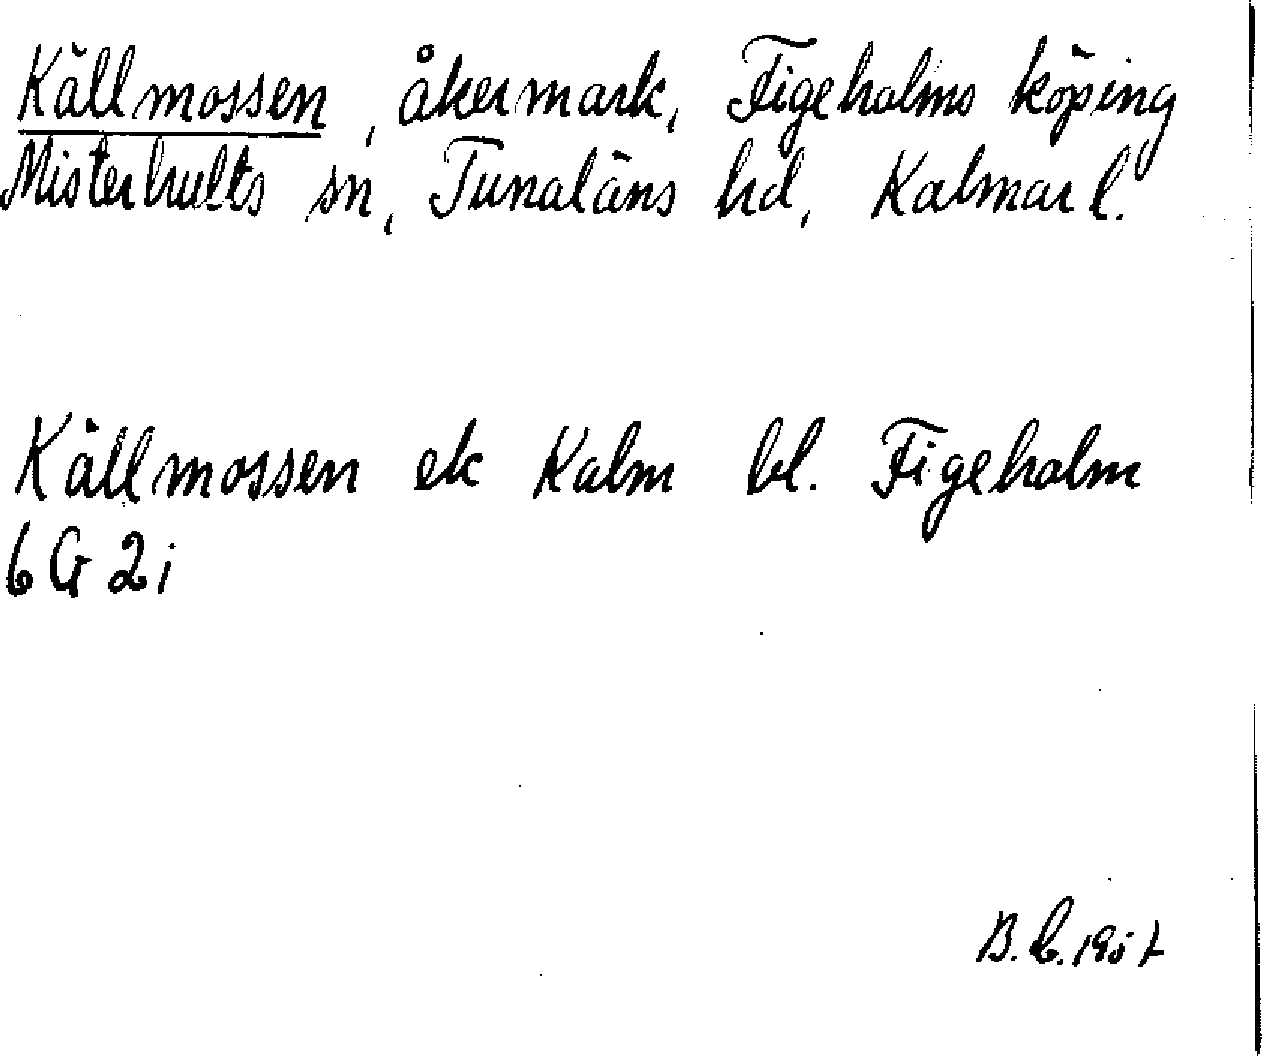 Källmossen, åkermark, Figeholms köping
Misterhults sn, Tunaläns hd, Kalmar l.
Källmossen ek Kalm bl. Figeholm
6G 2i
B.